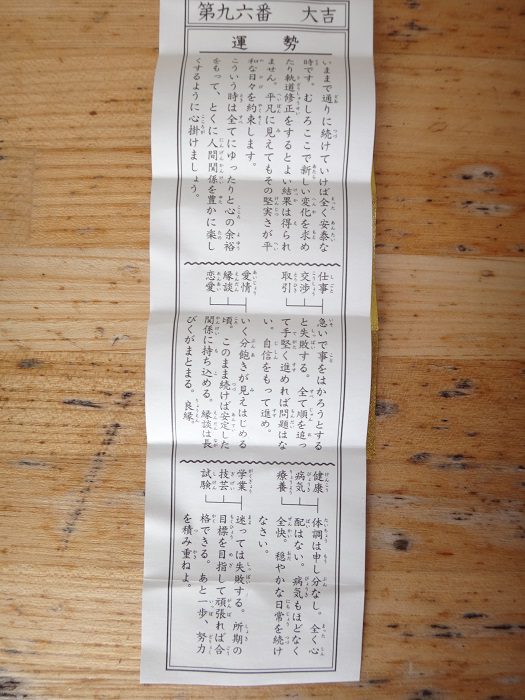 第九六番　大吉
運　勢
いままで通りに続けていけば全く安泰な
時です。むしろここで新しい変化を求め
たり軌道修正をするとよい結果は得られ
ません。平凡に見えてもその堅実さが平
和な日々を約束します。
こういう時は全てにゆったりと心の余裕
をもって、とくに人間関係を豊かに楽し
くするように心掛けましょう。
仕事
交渉
取引
急いで事をはかろうとする
と失敗する。全て順を追っ
て手堅く進めれば問題はな
い。自信をもって進め。
愛情
縁談
恋愛
いく分飽きが見えはじめる
頃。このまま続けば安定した
関係に持ち込める。縁談は長
びくがまとまる。良縁。
健康
病気
療養
体調は申し分なし。全く心
配はない。病気もほどなく
全快。穏やかな日常を続け
なさい。
学業
技芸
試験
迷っては失敗する。所期の
目標を目指して頑張れば合
格できる。あと一歩、努力
を積み重ねよ。